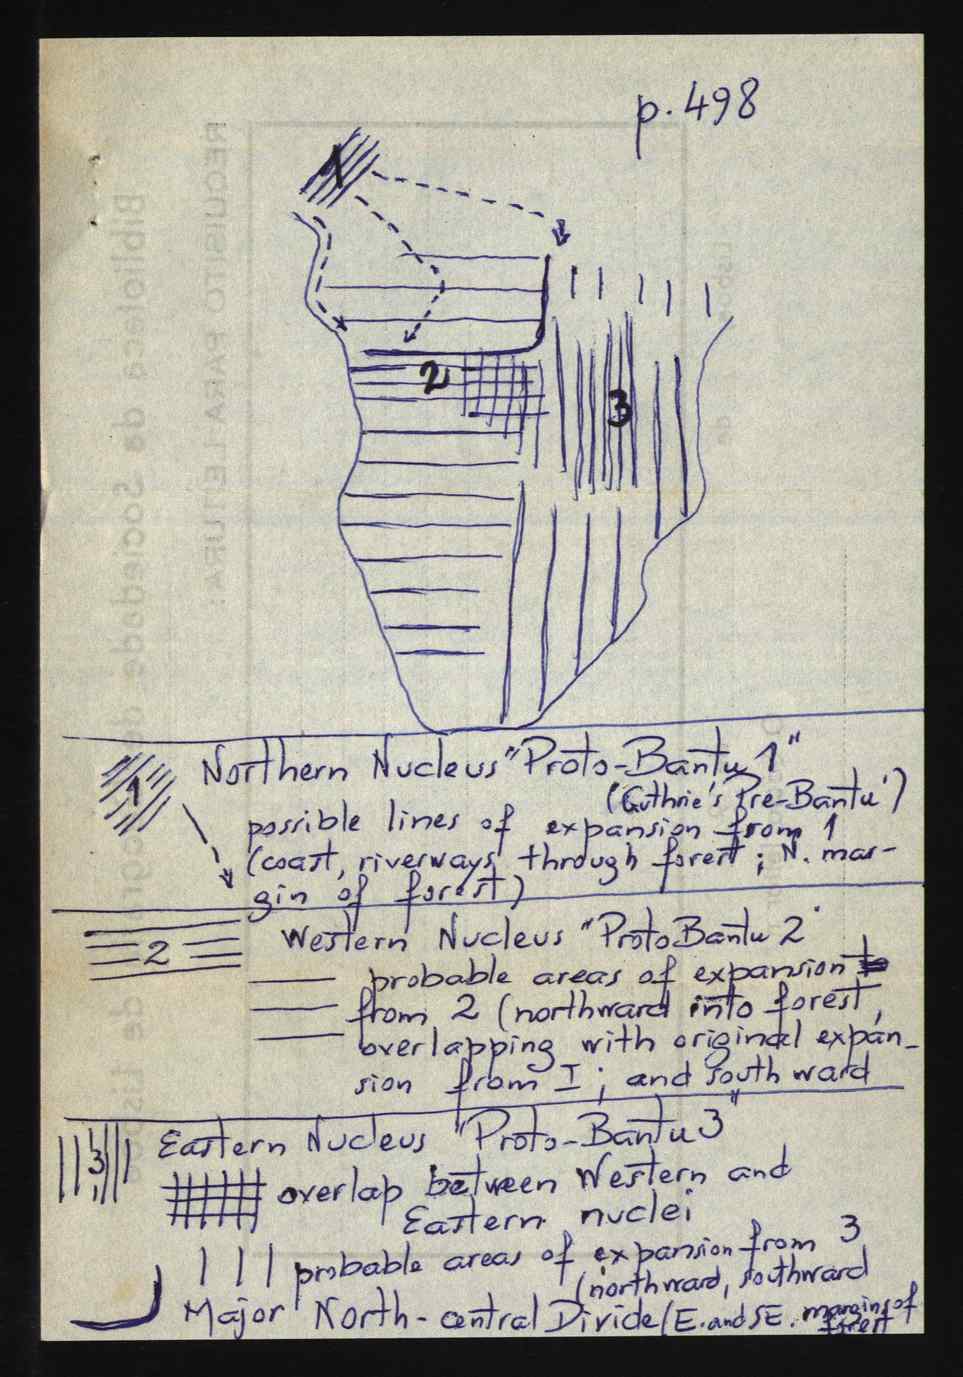 p. 498
1
2
3
1 Northern Nucleus "Proto-Bantu 1"
(Guthrie's Pre-Bantu')
possible lines of expansion from 1
(coast, riverways through forest; N. mar-
gin of forest)
2 Western Nucleus "Proto Bantu 2"
probable areas of expansion
from 2 (northward into forest,
overlapping with original expan-
sion from I; and southward
3 Eastern Nucleus "Proto-Bantu 3"
overlap between Western and
Eastern nuclei
probable areas of expansion from 3
(northward, southward
Major North-central Divide (E. and SE. margins of
forest
RECUISITO PARA LEITURA:
Biblioteca da Sociedade de Geografia de Lisboa